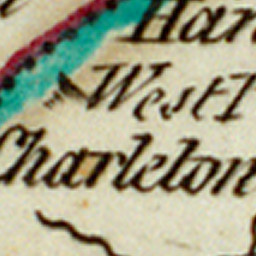 Har
West
Charleton